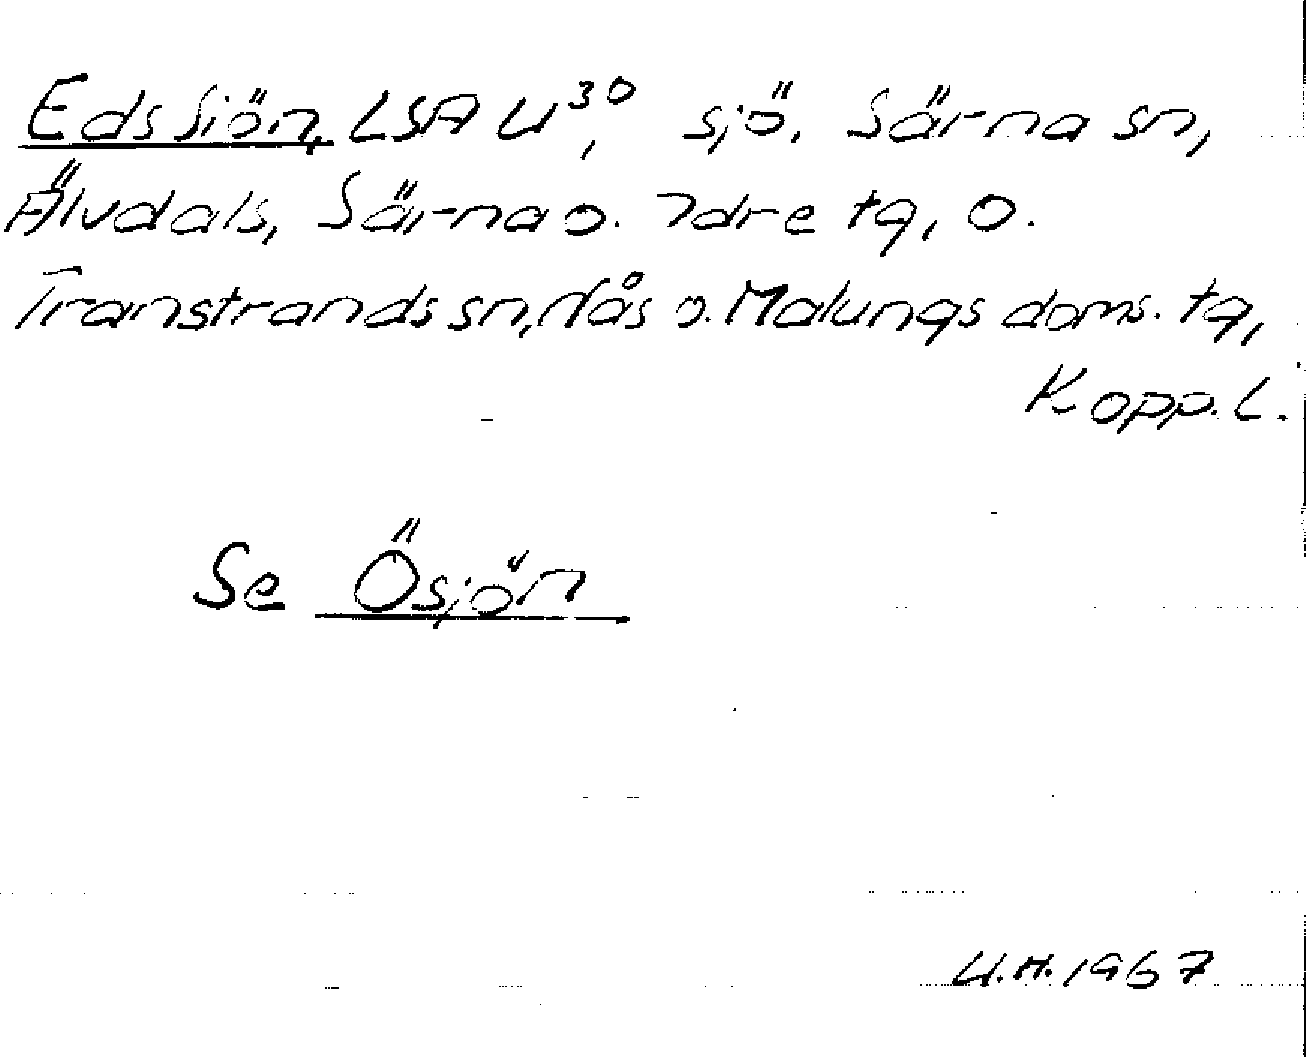 Eds Siön, LSA U³⁰, sjö. Särna sn,
Älvdals, Särna o. Idre tg, o.
Transtrands sn, Nås o. Malungs doms. tg,
Kopp. l.
Se Ösjön
U.H. 1967